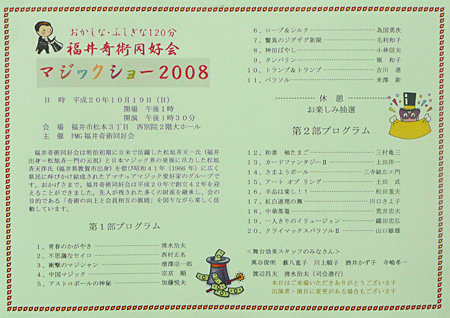 おかしな・ふしぎな120分
福井奇術同好会
マジックショー2008
日 時 平成20年10月19日(日)
開場 午後1時
開演 午後1時30分
会 場 福井市松本3丁目 西別院2階大ホール
主 催 FMG福井奇術同好会
福井奇術同好会は明治初期に日米で活躍した松旭斉天一氏(福井
出身=松旭斉一門の元祖)と日本マジック界の発展に尽力した松旭
斉天洋氏(福井県敦賀市出身)を偲び昭和41年(1966年)に広く
県民に呼びかけ結成されたアマチュアマジック愛好家のグループで
す。おかげさまで、福井奇術同好会は平成20年で創立42年を迎
えることができました。先人が残された多くの財産を継承し、会の
目的である「奇術の向上と会員相互の親睦」を図りながら楽しく活
動しています。
第1部プログラム
1、青春のかがやき 清水怡夫
2、不思議なセイロ 西村正名
3、衝撃のマジシャン 増澤宗一郎
4、中国マジック 宗京 順
5、アストロボールの神秘 加藤悦夫
6、ロープ&シルク 為国勇次
7、驚異のジグザグ新聞 毛利和子
8、神出ばやし 小林信夫
9、タンバリン 堀 和子
10、トランプ&トランプ 吉川 進
11、パラソル 米澤 新
休 憩
お楽しみ抽選
第2部プログラム
12、和妻 袖たまご 三村竜三
13、カードファンタジーⅡ 上田洋一
14、さまようボール 三寺総左ヱ門
15、アート オブ リング 土田 武
16、手品は楽しい!! 杉田重矢
17、紅白連理の舞 川口さよ子
18、中華蒸籠 荒井忠夫
19、一人きりのイリュージョン 織田忠弘
20、クライマックスパラソルⅡ 山口敏雄
<舞台効果スタッフのみなさん>
萬谷俊明 萩八重子 川上順子 酒井かず子 寺嶋孝一
渡辺昌夫 清水怡夫(司会進行)
本日はご来場いただきありがとうございます
出演者・演目に変更がある場合もございます